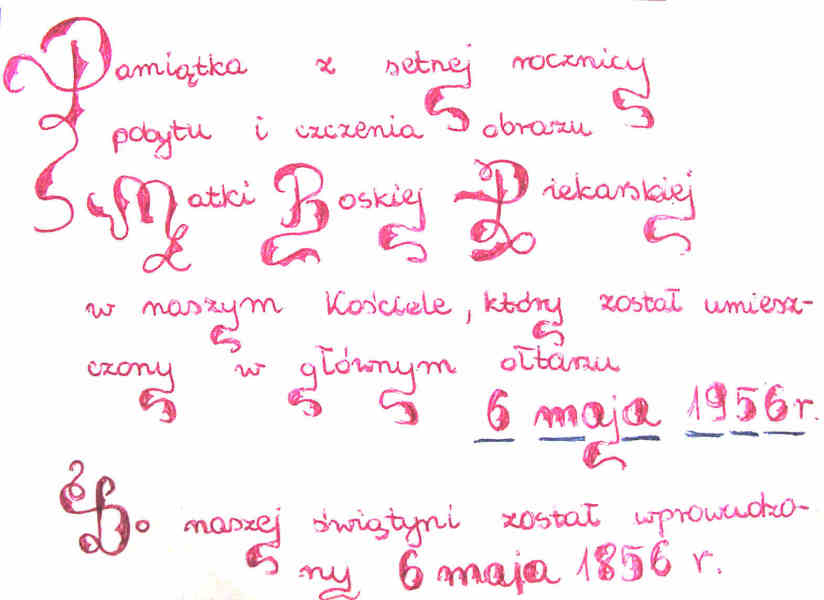 Pamiątka z setnej rocznicy
pobytu i czczenia obrazu
Matki Boskiej Piekarskiej
w naszym Kościele, który został umiesz-
czony w głównym ołtarzu
6 maja 1956 r.
Do naszej świątyni został wprowadzo-
ny 6 maja 1856 r.